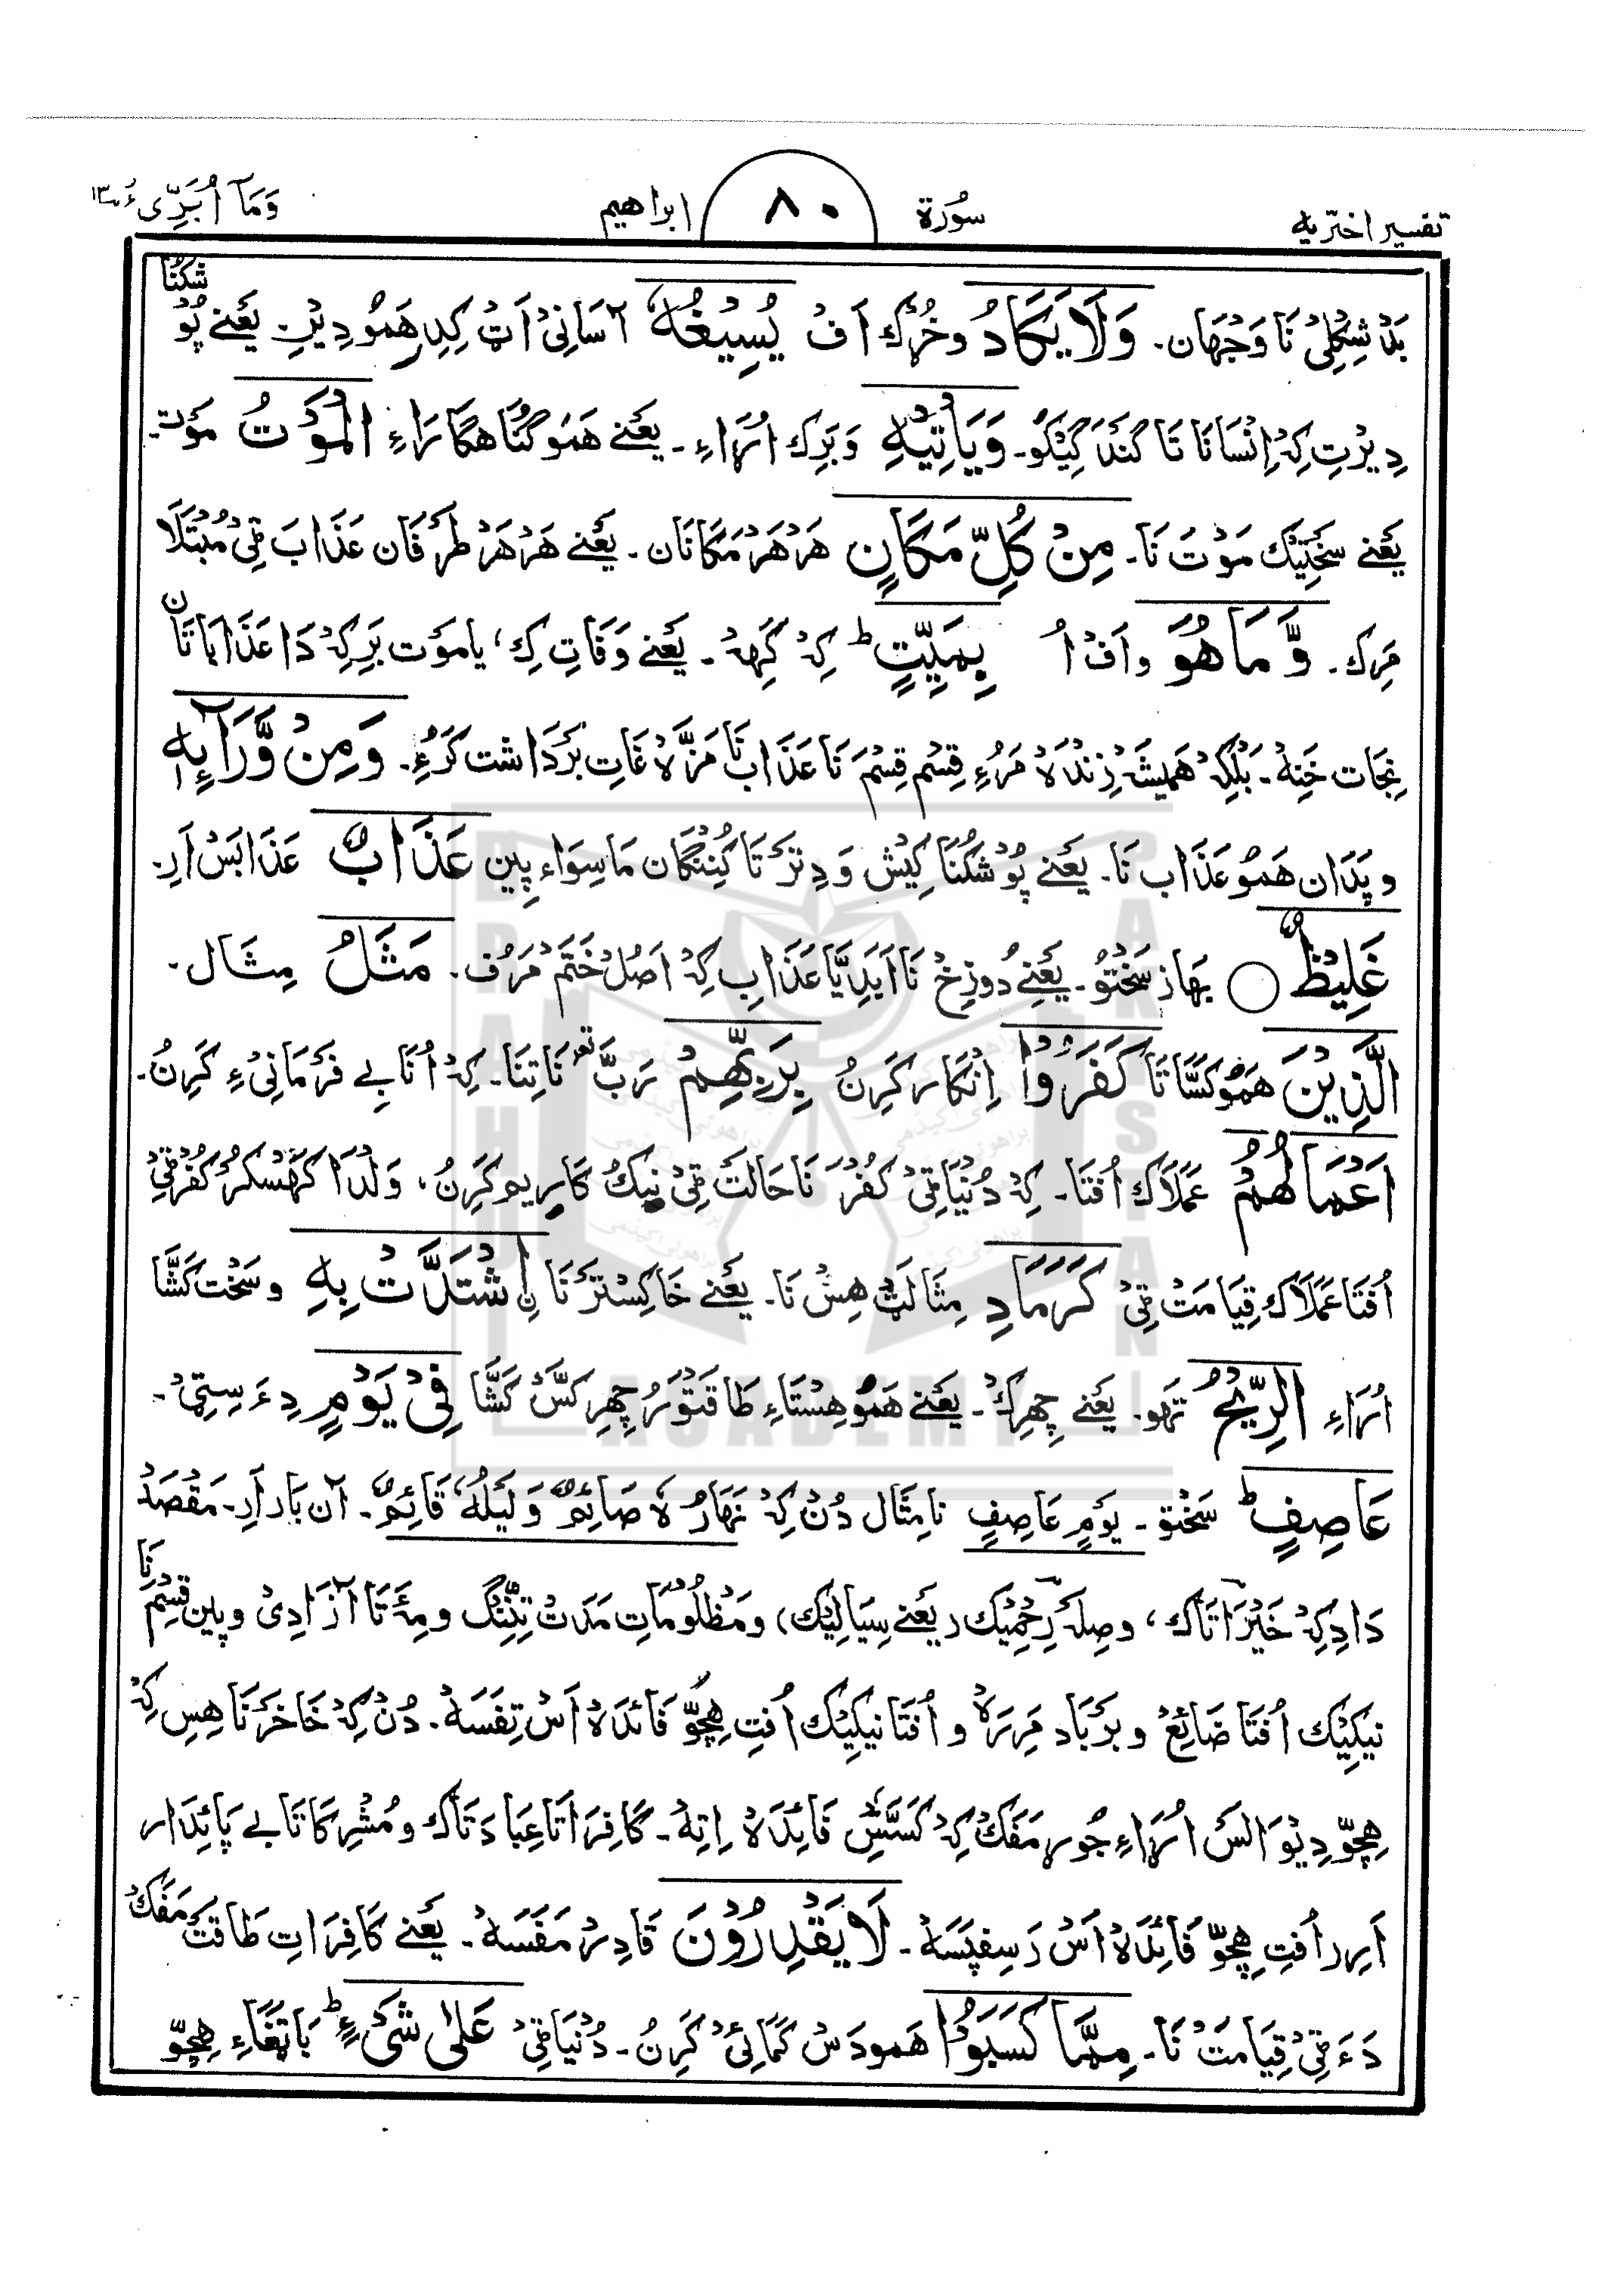 تفسیر اختریه سُورة ۸۰ ابراهیم وَمَآ اُبَرِّیُٔ ۱۳
بَدْ شِکْلِیْ نَا وَجْهَان۔ وَلَا یَکَادُ وخُرُک اَفْ یُسِیْغُهٗ آسَانِیْ اَٹْ کِدِ هَمُو دِیْرِ یَعْنے پُوْ شَکُنَا
دِیْرْتِ کِہْ اِنْسَانَا تَا کَنْدَ کِیْنکُو۔ وَیَاْتِیْهِ وَبَرِک اُرَاءِ۔ یَعْنے هَمُو گُنَاهگَارَاءِ الْمَوْتُ مَوْت۔
یَعْنے سَخْتِیْک مَوْتَ نَا۔ مِنْ کُلِّ مَکَانٍ هَرْهَرْ مَکَانَان۔ یَعْنے هَرْهَرْ طَرَفَان عَذَابَ ٹِیْ مُبْتَلَا
مَرِک۔ وَّمَا هُوَ وَاَفْ اُ بِمَیِّتٍ ؕ کِہْ کَهِہْ۔ یَعْنے وَفَاتِ کِ، یَا مَوْت بَرِ کِہْ دَا عَذَابَاتَان
نِجَات خَنِهْ۔ بَلْکِہْ هَمِیْشَہْ زِنْدَهْ مَرُءِ قِسْم قِسْمَ نَا عَذَابَ نَا مَزَّهْ غَاتِ بَرْدَاشت کَرُءِ۔ وَمِنْ وَّرَآئِهٖ
وِ پَدَان هَمُو عَذَاب نَا۔ یَعْنے پُوْ شَکُنَا کِیْش وَ دِتَرْ تَا کُنِنْگَان مَاسِوَاء پِین عَذَابٌ عَذَابَسْ اَرِ
غَلِیْظٌ ○ بهَاز سَخْتُو۔ یَعْنے دُوزِخْ نَا اَبَدِیَّا عَذَابِ کِہْ اَصُلْ خَتْم مَرُف۔ مَثَلُ مِثَال۔
الَّذِیْنَ هَمُو کَسَّاتَا کَفَرُوْا اِنْکَار کَرِنُ بِرَبِّهِمْ رَبّ نَا تِنَا۔ کِہْ اُنَا بے فَرْمَانِیْءِ کَرِنُ۔
اَعْمَالُهُمْ عَمَلَاک اُفْتَا۔ کِہْ دُنْیَا ٹِیْ کُفْرَ نَا حَالَتَ ٹِیْ نِیک کَارِیو کَرِنُ، وَلْدَا کَهَسْکُر کُفْر ٹِیْ
اُفْتَا عَمَلَاک قِیَامَتْ ٹِیْ کَرَمَادِ مِثَالَٹْ هِسْ نَا۔ یَعْنے خَاکِسْتَرْ نَا ۨاشْتَدَّتْ بِهِ وسَخْت کَشَّا
اُرَاءِ الرِّیْحُ تَهو۔ یَعْنے چِهِرِک۔ یَعْنے هَمُو هِسْتَاءِ طَاقَتْوَرُ چِهِرِکَسْ کَشَّا فِیْ یَوْمٍ دِءَ سِٹِیْ۔
عَاصِفٍ ؕ سَخْتو۔ یَوْمٍ عَاصِفٍ نَا مِثَال دُنْ کِہْ نَهَارُهٗ صَائِمٌ وَلَیْلُهٗ قَائِمٌ۔ آن بَار اَرِ۔ مَقْصَدْ
دَادِ کِہْ خَیْرَاتَاک، وصِلَہ رَحْمِیک (یَعْنے سِیَالِیْک) ومَظْلُومَاتِ مَدَت تِنِنْگ ومِءَ تَا آزَادِی وپِین قِسْم نَا
نِیکِیْک اُفْتَا ضَائِعْ وبَرْبَاد مَرِرَهْ و اُفْتَا نِیکِیْک اُفْتِ هِچُّو فَائدَهْ اَسْ تِفَسَهْ۔ دُنْ کِہْ خَاخَرْ نَا هِس کِہْ
هِچُّو دِیْوَالَسْ اُرَاءِ جُوڑ مَفَکْ کِہْ کَسَّسْ فَائدَهْ اِتِهْ۔ کَافِرَاتَا عِبَادَتَاک ومُشْرِکَاتَا بے پَائدَار
اَرِر اُفْتِ هِچُّو فَائدَهْ اَسْ رَسِفپَسَهْ۔ لَا یَقْدِرُوْنَ قَادِرُ مَفَسَهْ۔ یَعْنے کَافِرَاتِ طَاقَت مَفَکْ
دَءَ ٹِیْ قِیَامَتْ نَا۔ مِمَّا کَسَبُوْا هَمودَسْ کَمَائِیْ کَرِنُ۔ دُنْیَا ٹِیْ عَلٰی شَیْءٍ ؕ بَاتِغَاءِ هِچُّو